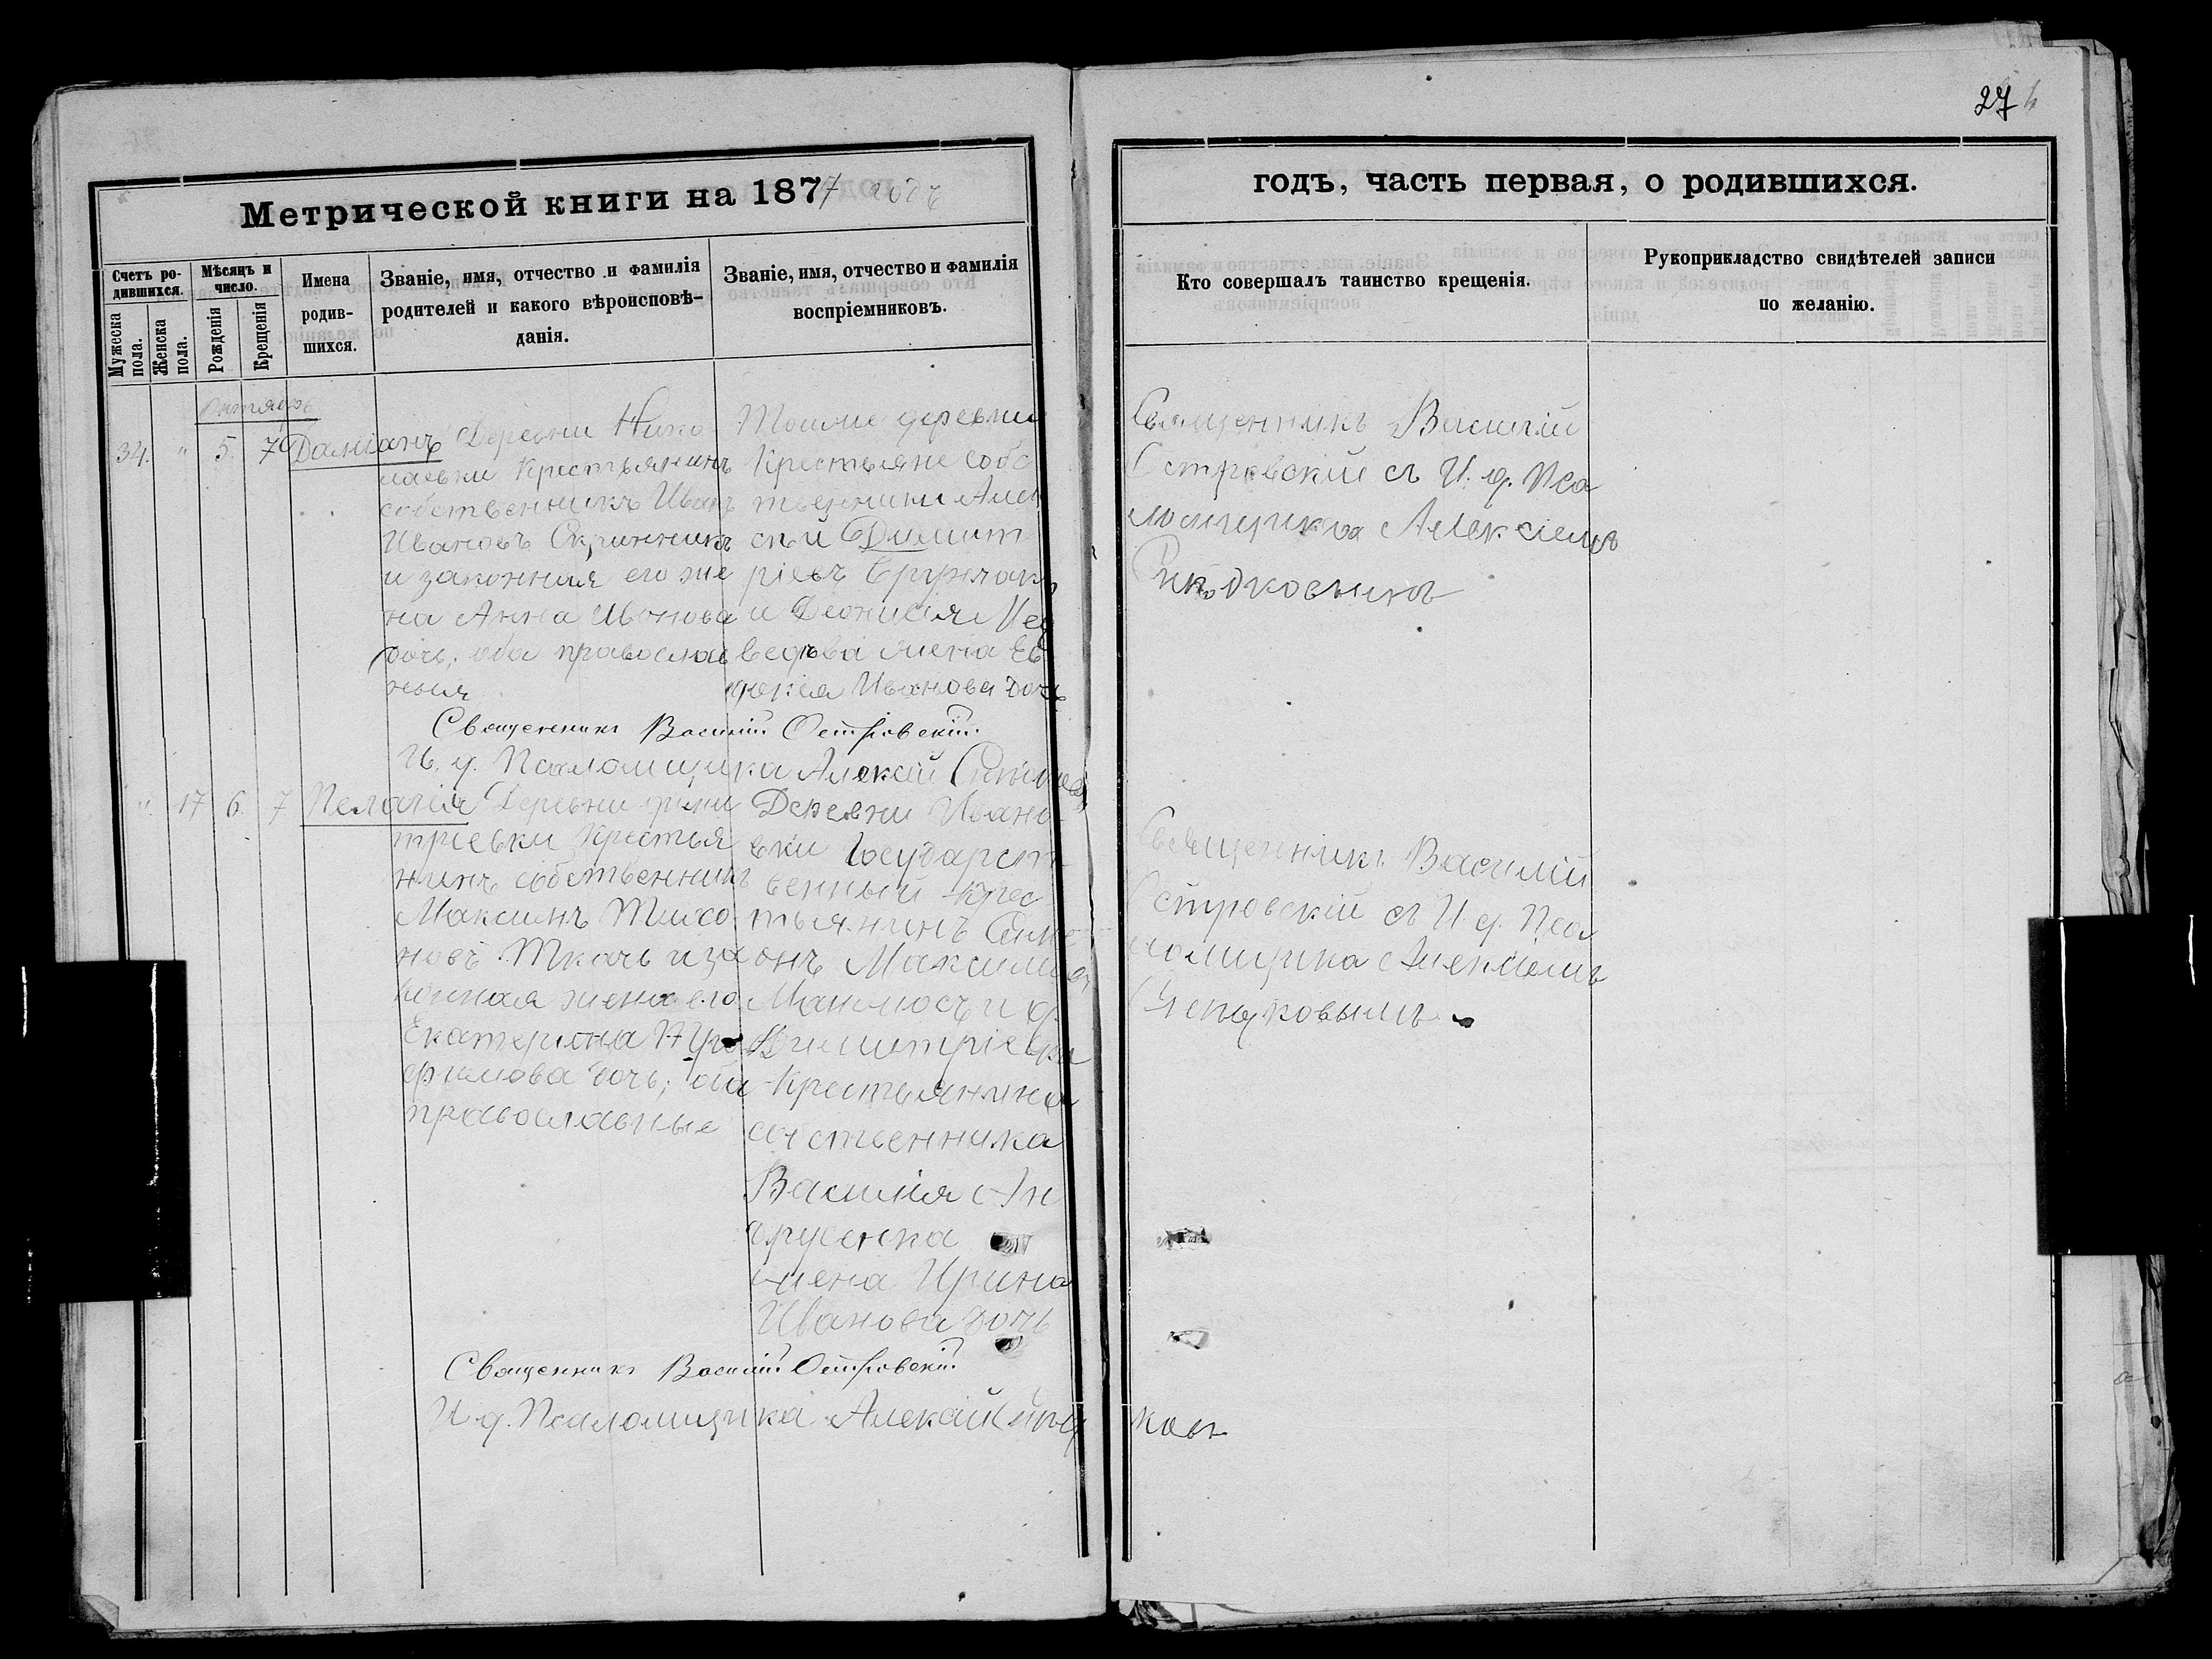 27
Метрической книги на 1877 годъ
годъ, часть первая, о родившихся.
Счетъ родившихся.
Мужеска пола.
Женска пола.
Мѣсяцъ и число.
Рожденія
Крещенія
Имена родив-
шихся.
Званіе, имя, отчество и фамилія
родителей и какого вѣроисповѣ-
данія.
Званіе, имя, отчество и фамилія
воспріемниковъ.
Кто совершалъ таинство крещенія.
Рукоприкладство свидѣтелей записи
по желанію.
Октябрь
34. " 5. 7 Даміанъ
Деревни Нико
лаевки Крестьянинъ
собственникъ Иванъ
Ивановъ
и законная его же
на Анна Иванова
дочь, оба православ
ныя
Тоиже деревни
Крестьяне собс
твенники Алек
сѣй Димит
ріевъ
и Діонисія Мед
ведева жена Ев
докія Иванова дочь
Священникъ Василій
Островскій съ И. д. Пса
ломщика Алексіемъ
Священникъ Василій Островскій
И. д. Псаломщика Алексій
" 17 6. 7 Пелагія
Деревни Дими
тріевки Крестья
нинъ собственникъ
Максимъ Тихо
новъ Ткачъ и за
конная жена его
Екатерина Тро
фимова дочь; оба
православные
Деревни Ивано
вки Государст
венный крес
тьянинъ Симе
онъ Максимовъ
и д.
Димитріевки
Крестьянина
собственника
Василія Ан
друсенка
жена Ирина
Иванова дочь
Священникъ Василій
Островскій съ И. д. Пса
ломщика Алексіемъ
Священникъ Василій Островскій
И. д. Псаломщика Алексій